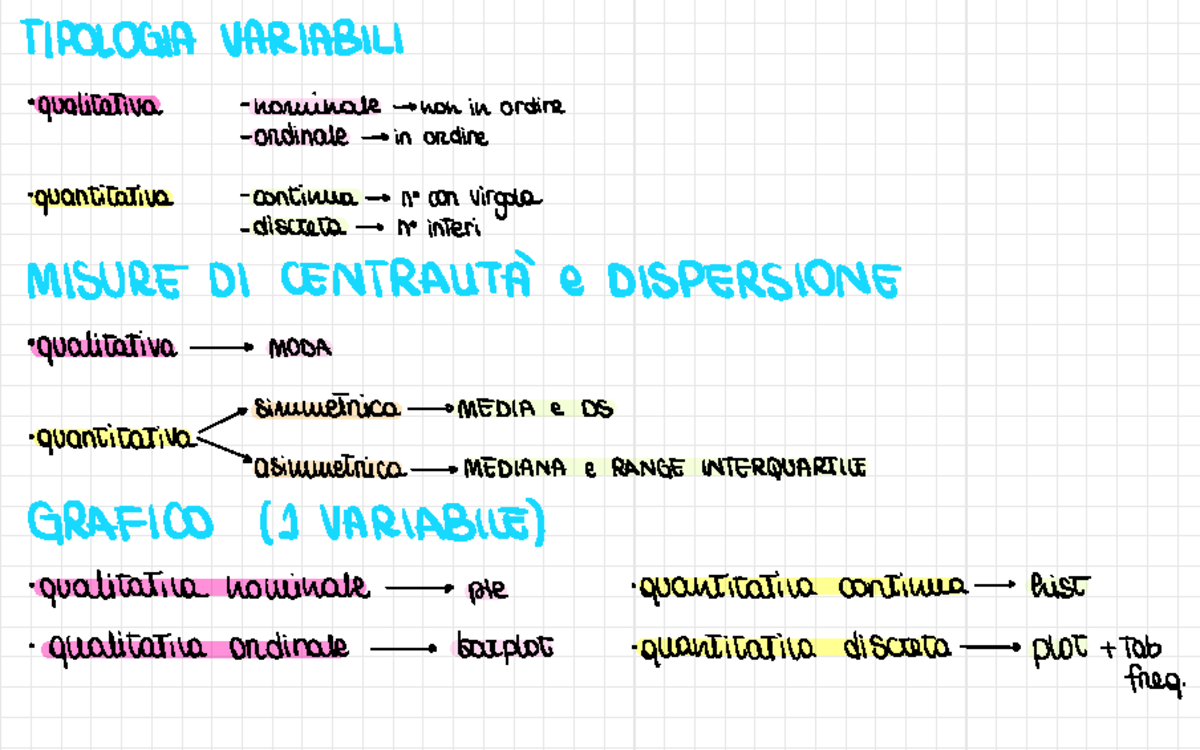 TIPOLOGIA VARIABILI
•qualitativa -nominale → non in ordine
-ordinale → in ordine
•quantitativa -continua → n° con virgola
-discreta → n° interi
MISURE DI CENTRALITÀ e DISPERSIONE
•qualitativa → MODA
simmetrica → MEDIA e DS
•quantitativa
asimmetrica → MEDIANA e RANGE INTERQUARTILE
GRAFICO (1 VARIABILE)
•qualitativa nominale → pie •quantitativa continua → hist
•qualitativa ordinale → barplot •quantitativa discreta → plot + Tab
freq.